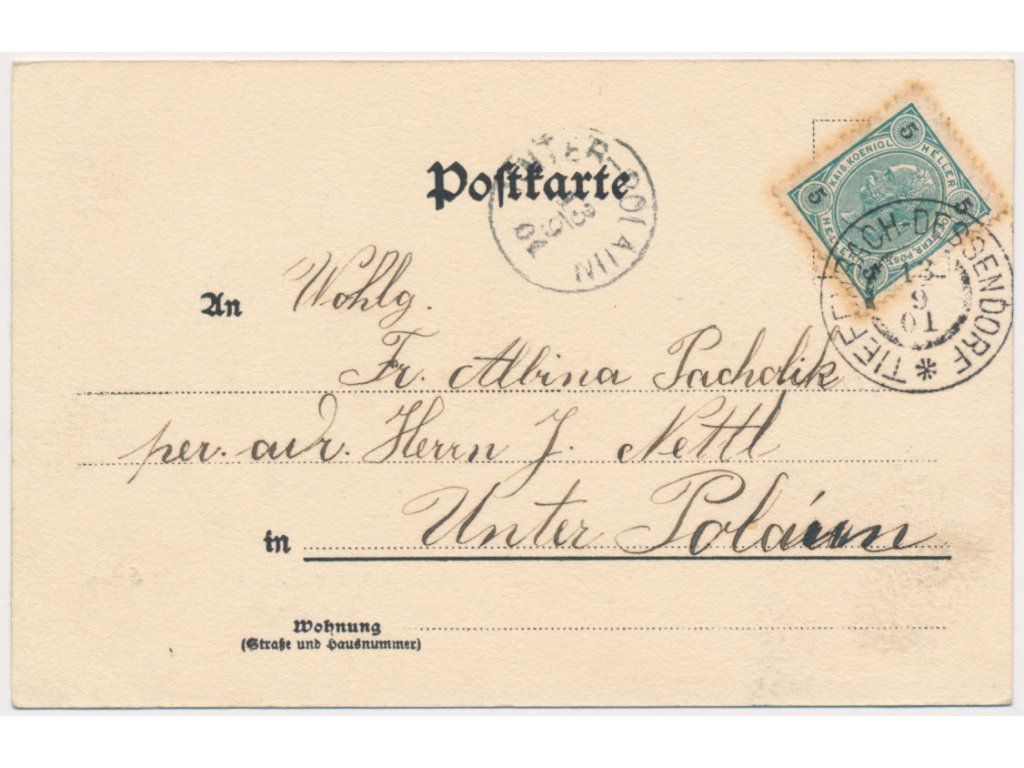 Postkarte
UNTER-POLAUN
13 9 01
5 5 5 5
KAIS. KOENIGL. OESTERR. POST
HELLER HELLER
TIEFENBACH-DESSENDORF
13
9
01
An Wohlg.
Fr. Albina Pacholik
per. adr. Herrn J. Nettl
in Unter Poláun
Wohnung
(Straße und Hausnummer)